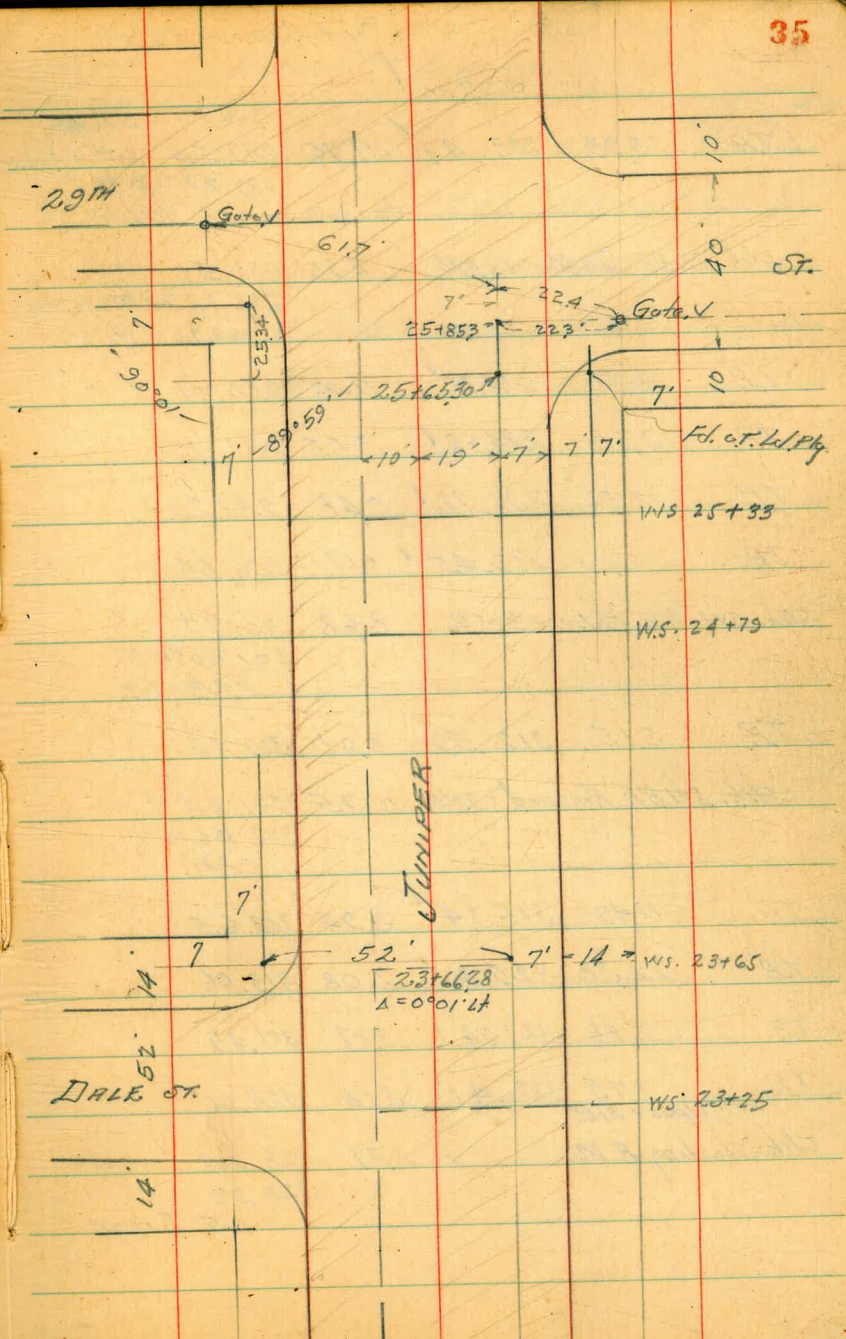 35
10'
29TH
Gate.V
61.7
40'
ST.
7'
22.4
Gate.V
7'
25+85.3
22.3'
25.34
90°01'
25+65.30
10
7'
89°59'
7'
Fd. c.T. Ld. Plg.
10' 19' 7' 7' 7'
WS 25+33
W.S. 24+79
JUNIPER
7'
7
52'
7'
14
WS. 23+65
14'
23+66.28
Δ=0°01' Lt
52'
DALE ST.
WS 23+25
14'